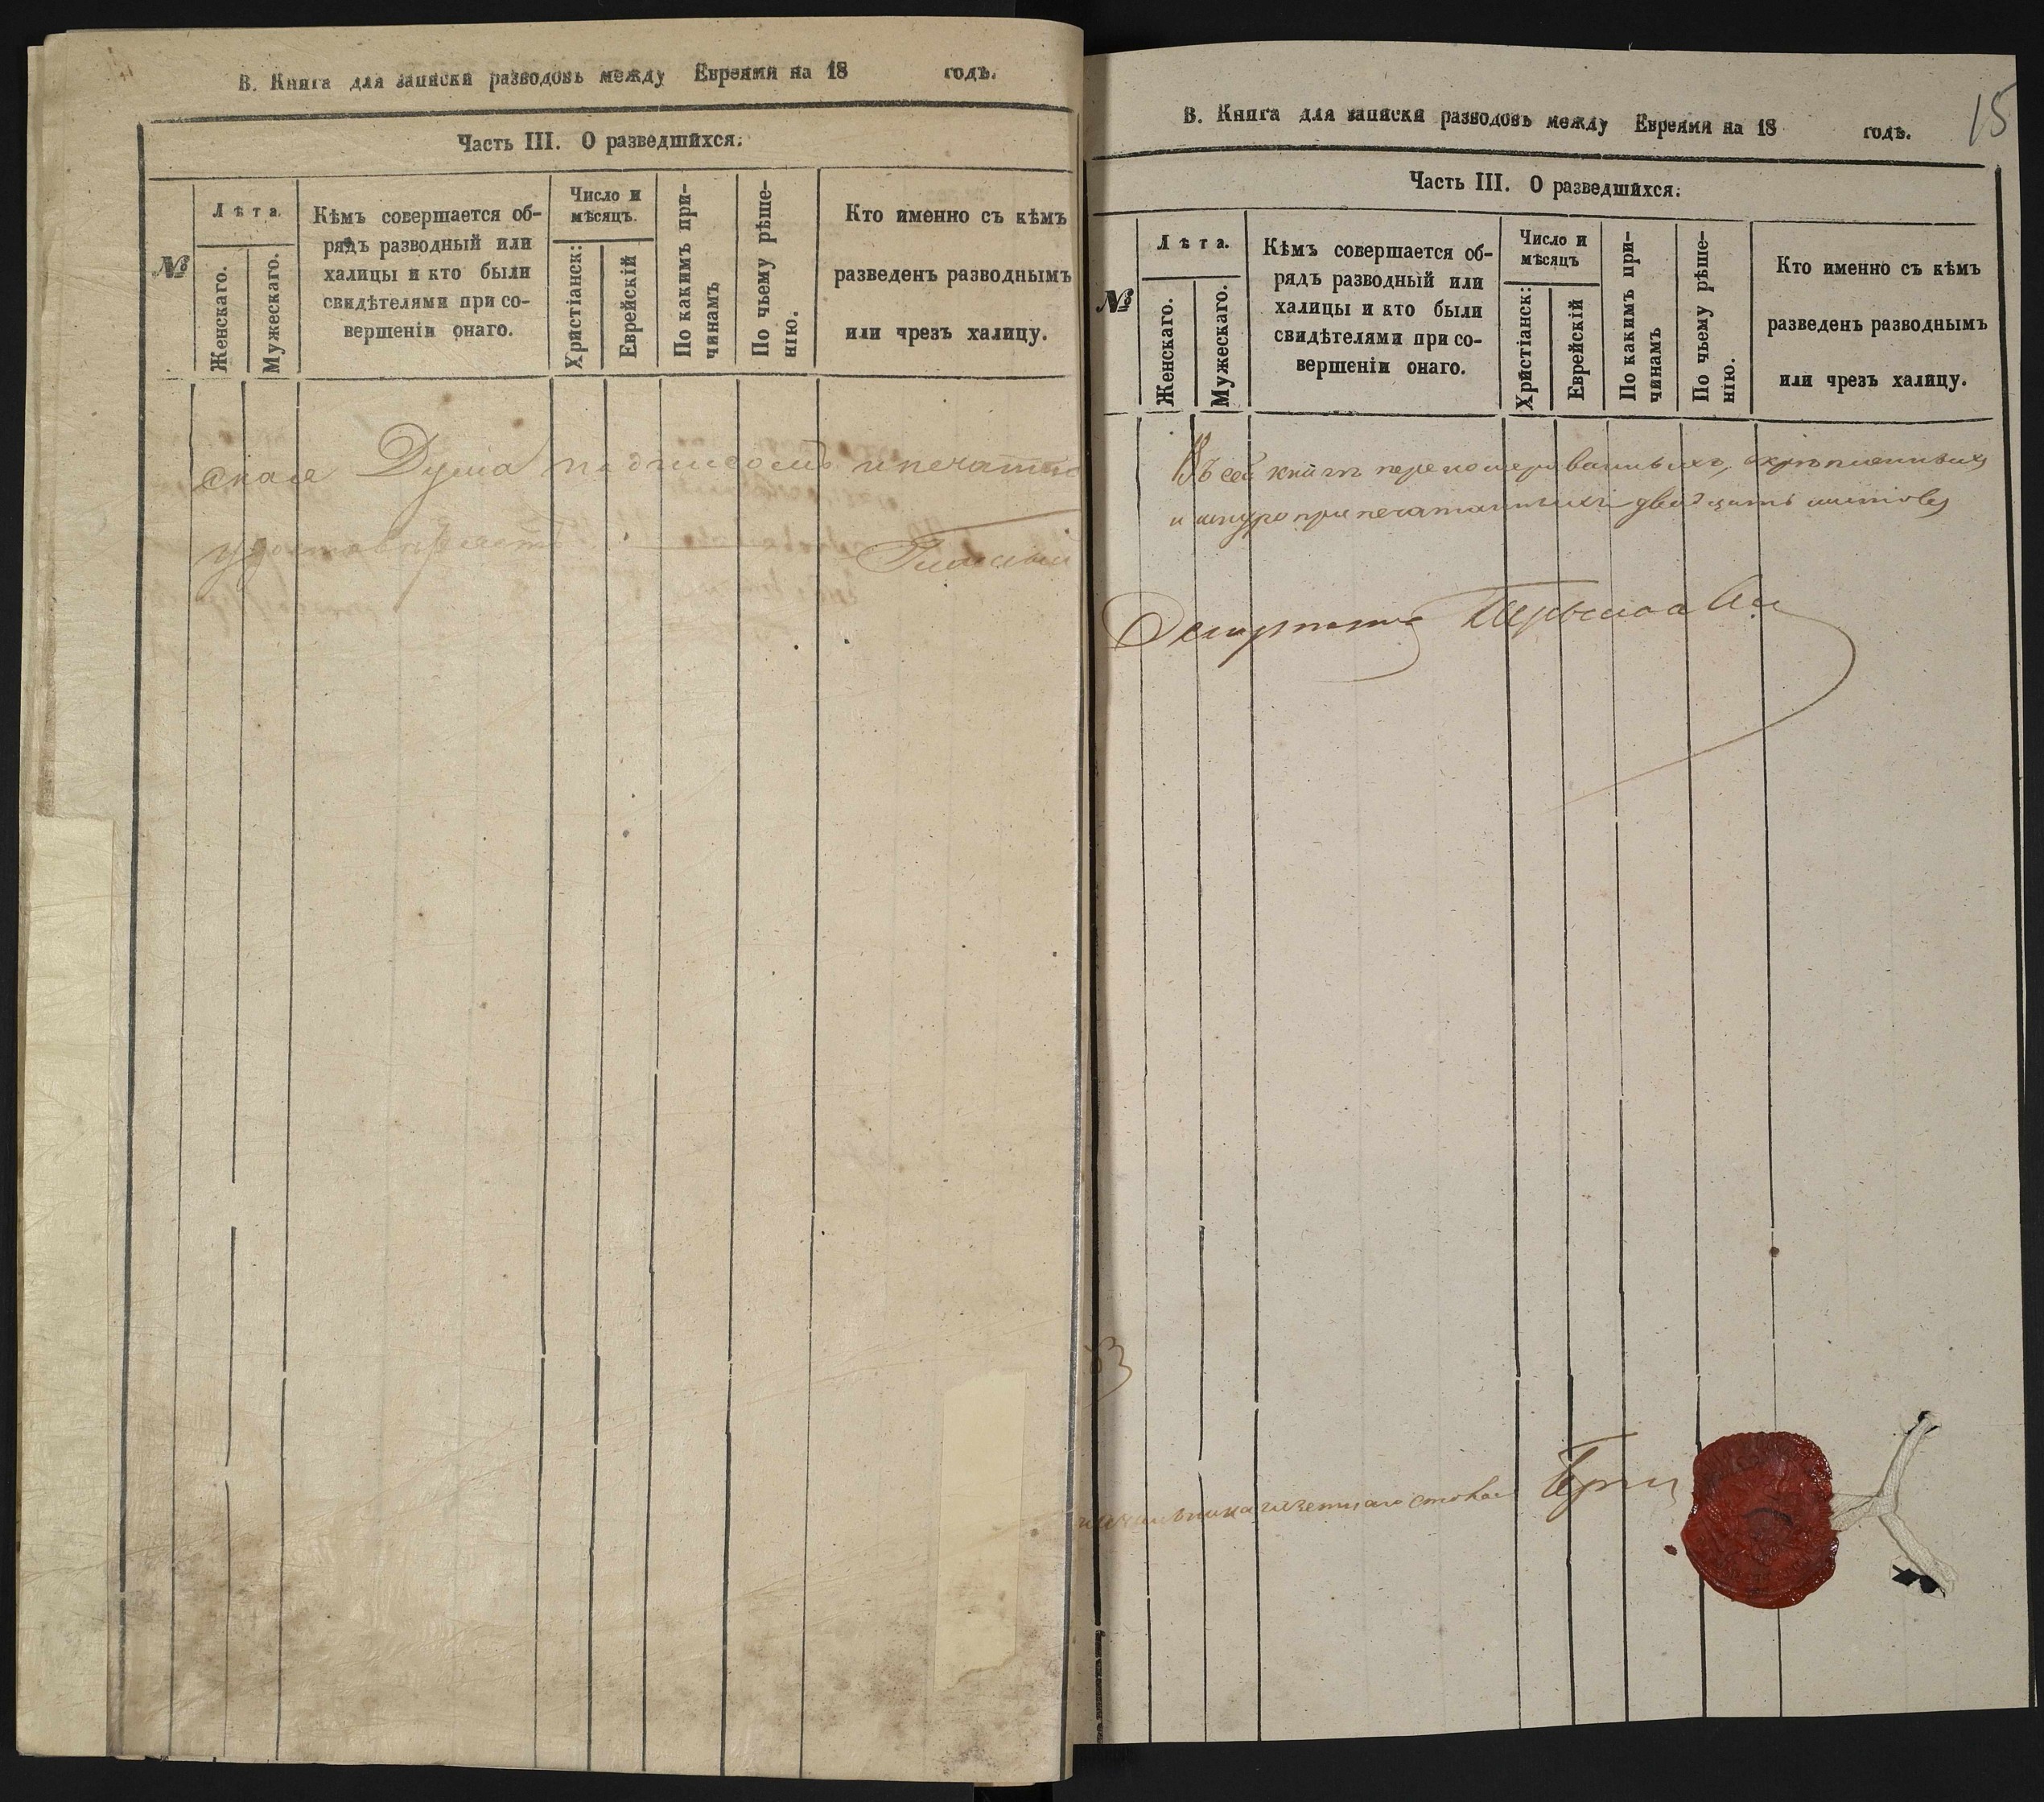 В. Книга для записки разводовъ между Евреями на 18 годъ.
Часть III. О разведшихся.
№
Лѣта.
Женскаго.
Мужескаго.
Кѣмъ совершается об-
рядъ разводный или
халицы и кто были
свидѣтелями при со-
вершеніи онаго.
Число и
мѣсяцъ.
Христіанск:
Еврейскій
По какимъ при-
чинамъ
По чьему рѣше-
нію.
Кто именно съ кѣмъ
разведенъ разводнымъ
или чрезъ халицу.
ская Дума подписомъ и печатью
Гласный
15
В. Книга для записки разводовъ между Евреями на 18 годъ.
Часть III. О разведшихся.
№
Лѣта.
Женскаго.
Мужескаго.
Кѣмъ совершается об-
рядъ разводный или
халицы и кто были
свидѣтелями при со-
вершеніи онаго.
Число и
мѣсяцъ
Христіанск:
Еврейскій
По какимъ при-
чинамъ
По чьему рѣше-
нію.
Кто именно съ кѣмъ
разведенъ разводнымъ
или чрезъ халицу.
Въ сей книгѣ перенумерованныхъ, скрѣпленныхъ
и шнуро припечатанныхъ двадцать листовъ